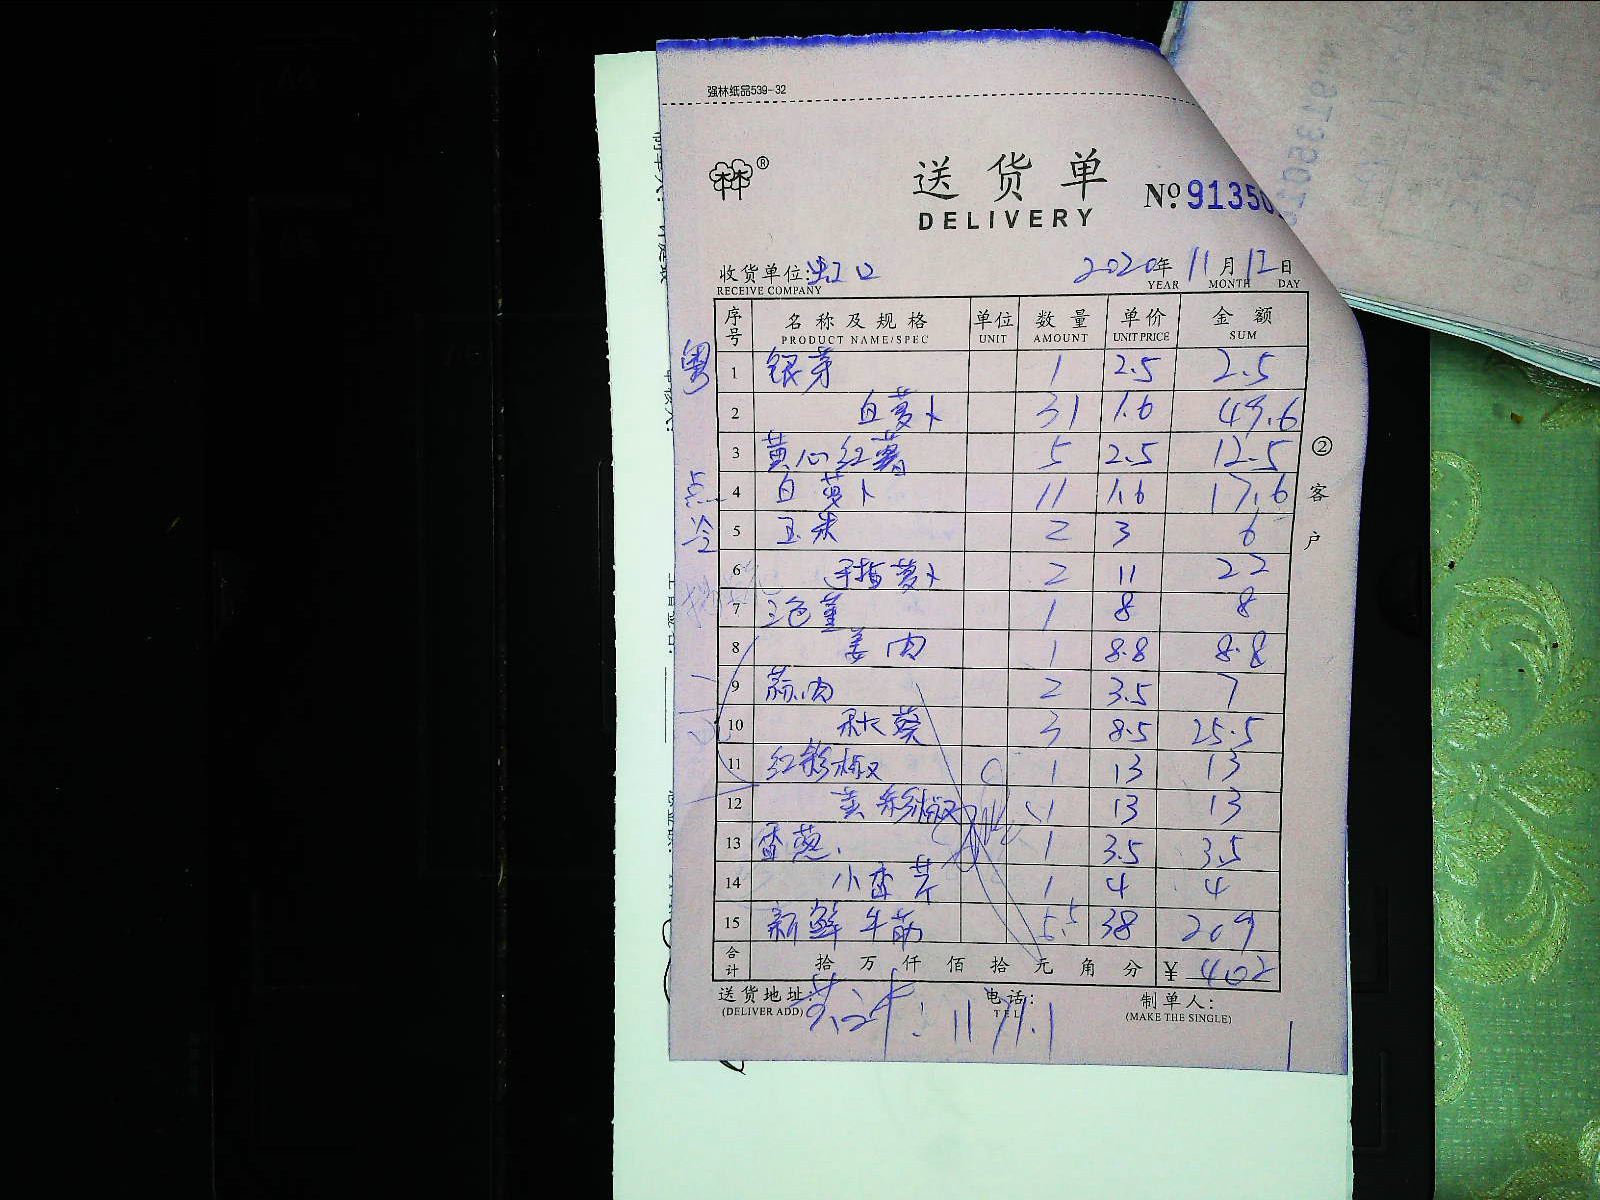 强林纸品539-32
送货单 №91350
DELIVERY
收货单位:虹口 2020年11月12日
RECEIVE COMPANY YEAR MONTH DAY
序号 名称及规格 单位 数量 单价 金额
PRODUCT NAME/SPEC UNIT AMOUNT UNIT PRICE SUM
粤
1 银芽 1 2.5 2.5
2 白萝卜 31 1.6 49.6
3 黄心红薯 5 2.5 12.5
点
4 白萝卜 11 1.6 17.6
冷
5 玉米 2 3 6
6 手指萝卜 2 11 22
7 三色堇 1 8 8
8 姜肉 1 8.8 8.8
9 蒜肉 2 3.5 7
10 秋葵 3 8.5 25.5
11 红彩椒 1 13 13
12 黄彩椒 1 13 13
13 香葱 1 3.5 3.5
14 小香芹 1 4 4
15 新鲜牛筋 5.5 38 209
合计 拾万仟佰拾元角分 ¥402
送货地址: 电话: 制单人:
(DELIVER ADD) TEL (MAKE THE SINGLE)
共计: 1171.1
②客户